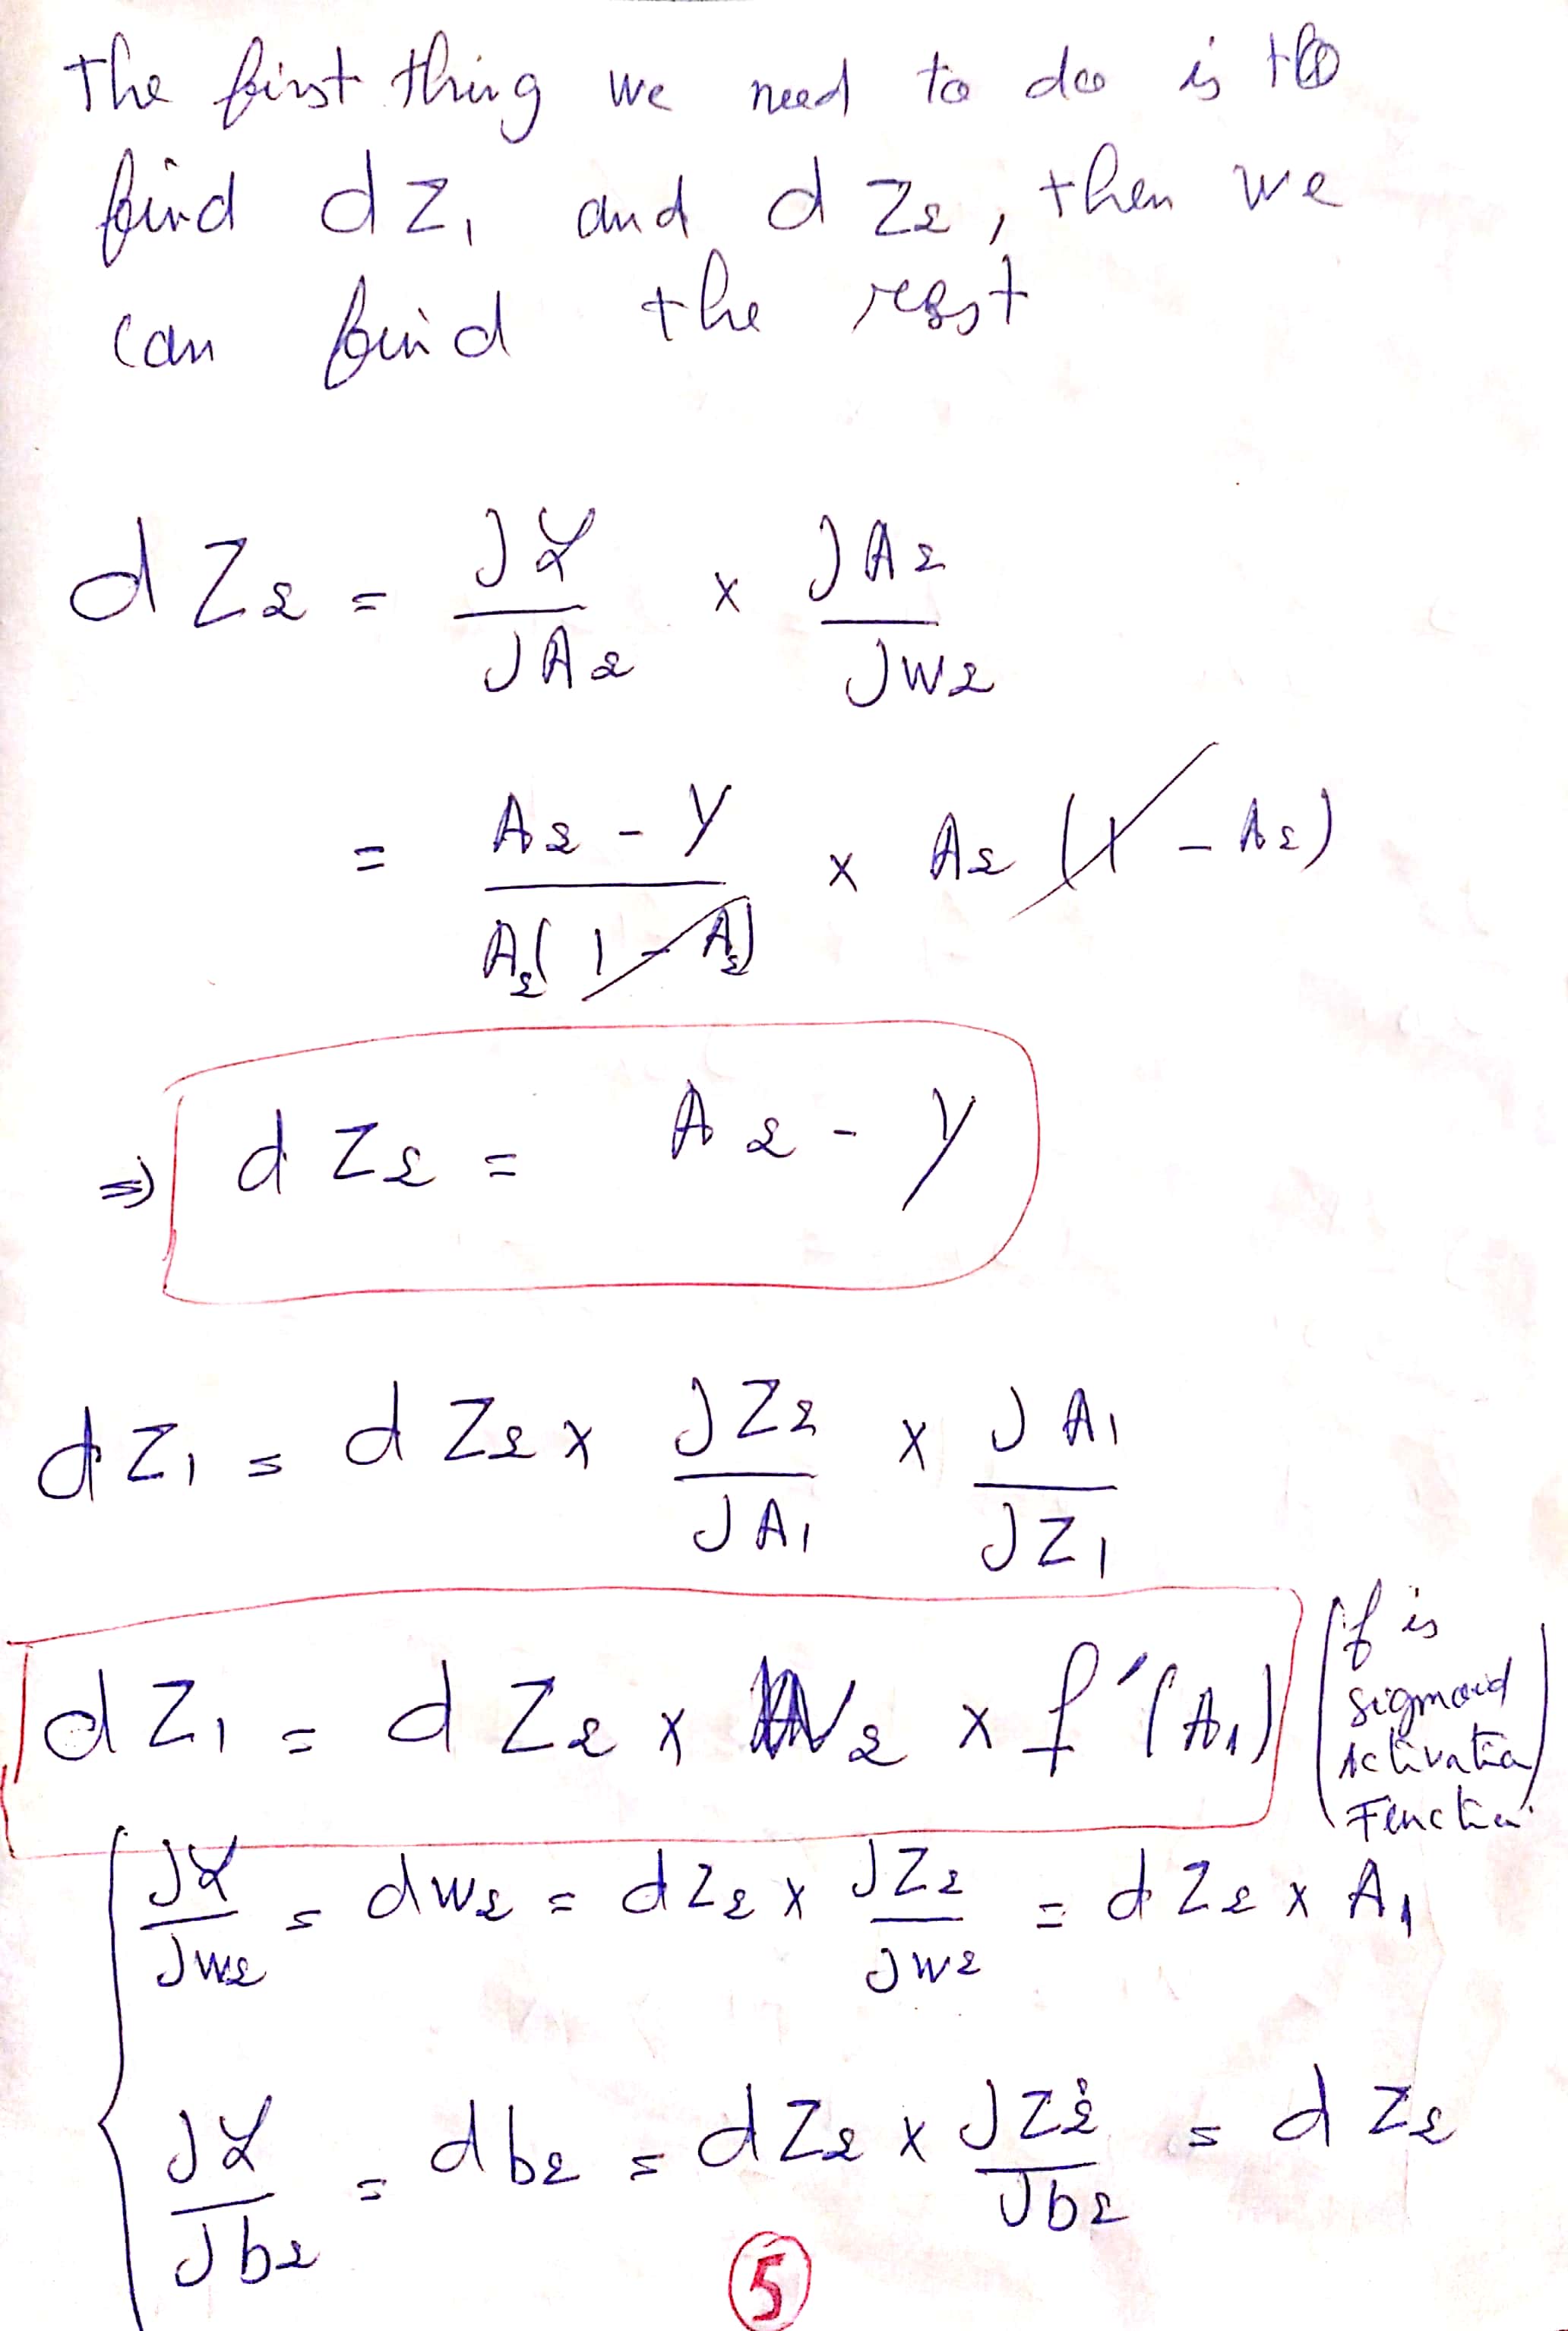 The first thing we need to do is to
find dZ₁ and dZ₂, then we
can find the rest
dZ₂ = ∂ℒ/∂A₂ × ∂A₂/∂W₂
= A₂ - Y / A₂(1 - A₂) × A₂(1 - A₂)
⇒ dZ₂ = A₂ - Y
dZ₁ = dZ₂ × ∂Z₂/∂A₁ × ∂A₁/∂Z₁
dZ₁ = dZ₂ × W₂ × f'(A₁) (f is
sigmoid
Activation
Function)
∂ℒ/∂W₂ = dW₂ = dZ₂ × ∂Z₂/∂W₂ = dZ₂ × A₁
∂ℒ/∂b₂ = db₂ = dZ₂ × ∂Z₂/∂b₂ = dZ₂
5